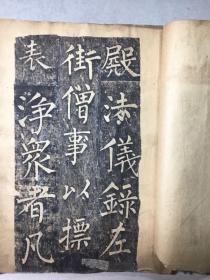 殿法儀錄左
街僧事以摽
表淨衆者凡